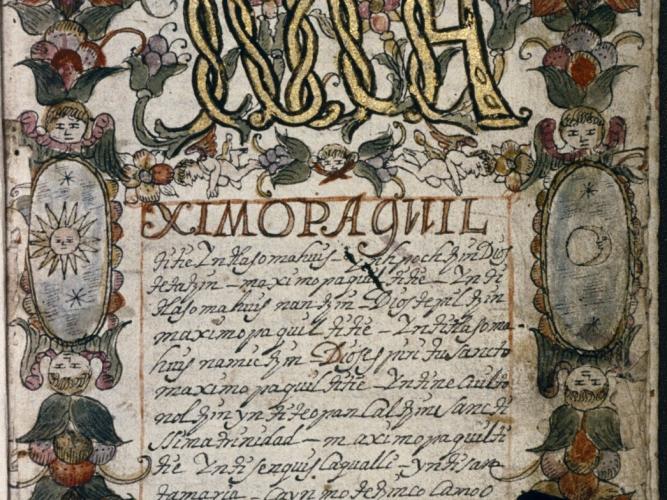 XIMOPAQUIL
titie Yn tlasomahuis – Ychpochtzin Dios
tetatzin – maximopaquiltitie – Yn ti
tlasomahuis nantzin – Dios tepiltzin
maximopaquiltitie – Yn titlasoma
huis namictzin Dios espiritu sancto
maximopaquiltitie – Yntinecauilto
noltzin yn titeopancaltzin sancti
ssima trinidad – maximopaquilti
tie Yn ti senquiscaqualli – yn ti san
tamaria – ca yn motetzinco